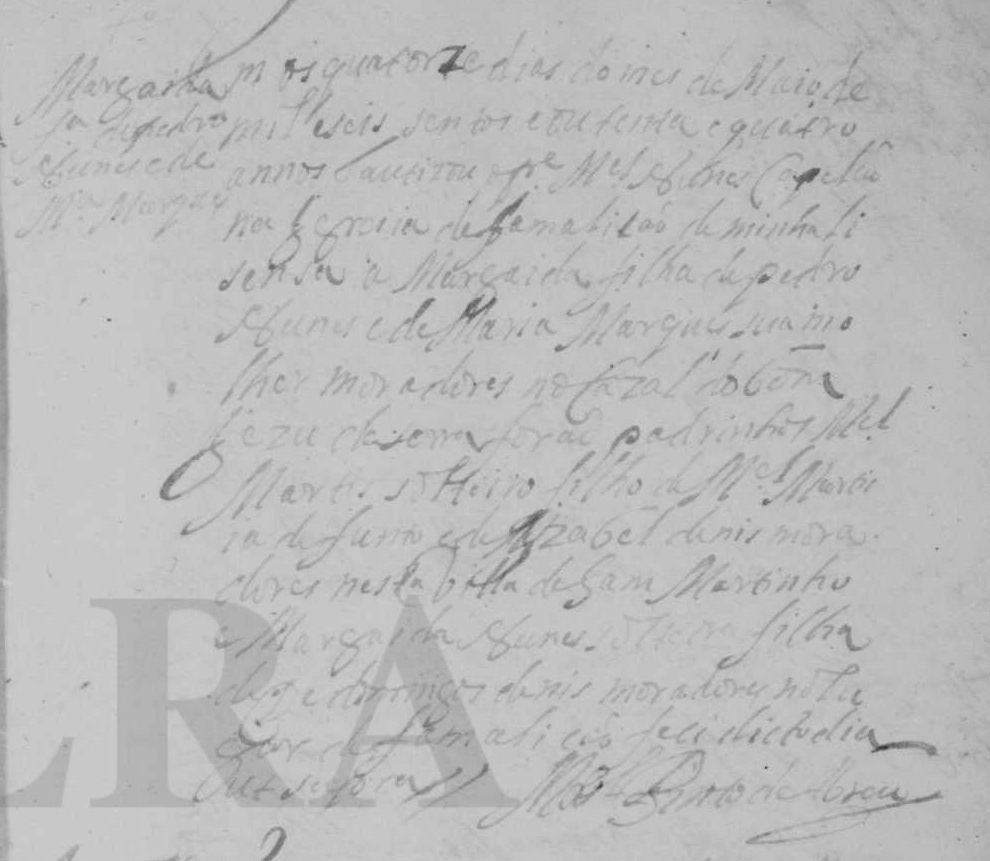 Margaida
fa de pedro
Nunes e de
Ma Marques
m os quatorze dias do mes de Maio de
mil e seis sentos e outenta e quatro
annos bautizou o pe Mel Nunes Capelaõ
na Igreiia de famalizaõ de minha li
sensa a Margaida filha de pedro
Nunes e de Maria Marques sua mo
lher moradores no Cazal do bom
Jezu de foraõ padrinhos Mel
Martis solteiro filho de Mel Martis
ia defunto e de Izabel denis mora
dores nesta villa de Sam Martinho
e Margaida Nunes solteira filha
de domingos denis moradores no lu
gar de famalicaõ feci dicto dia
ut sopra Mel Pinto de Abreu
LRA